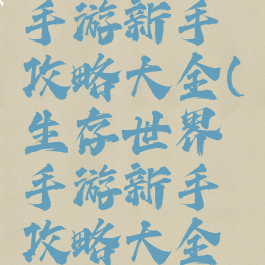 手游新手
攻略大全(
生存世界
手游新手
攻略大全